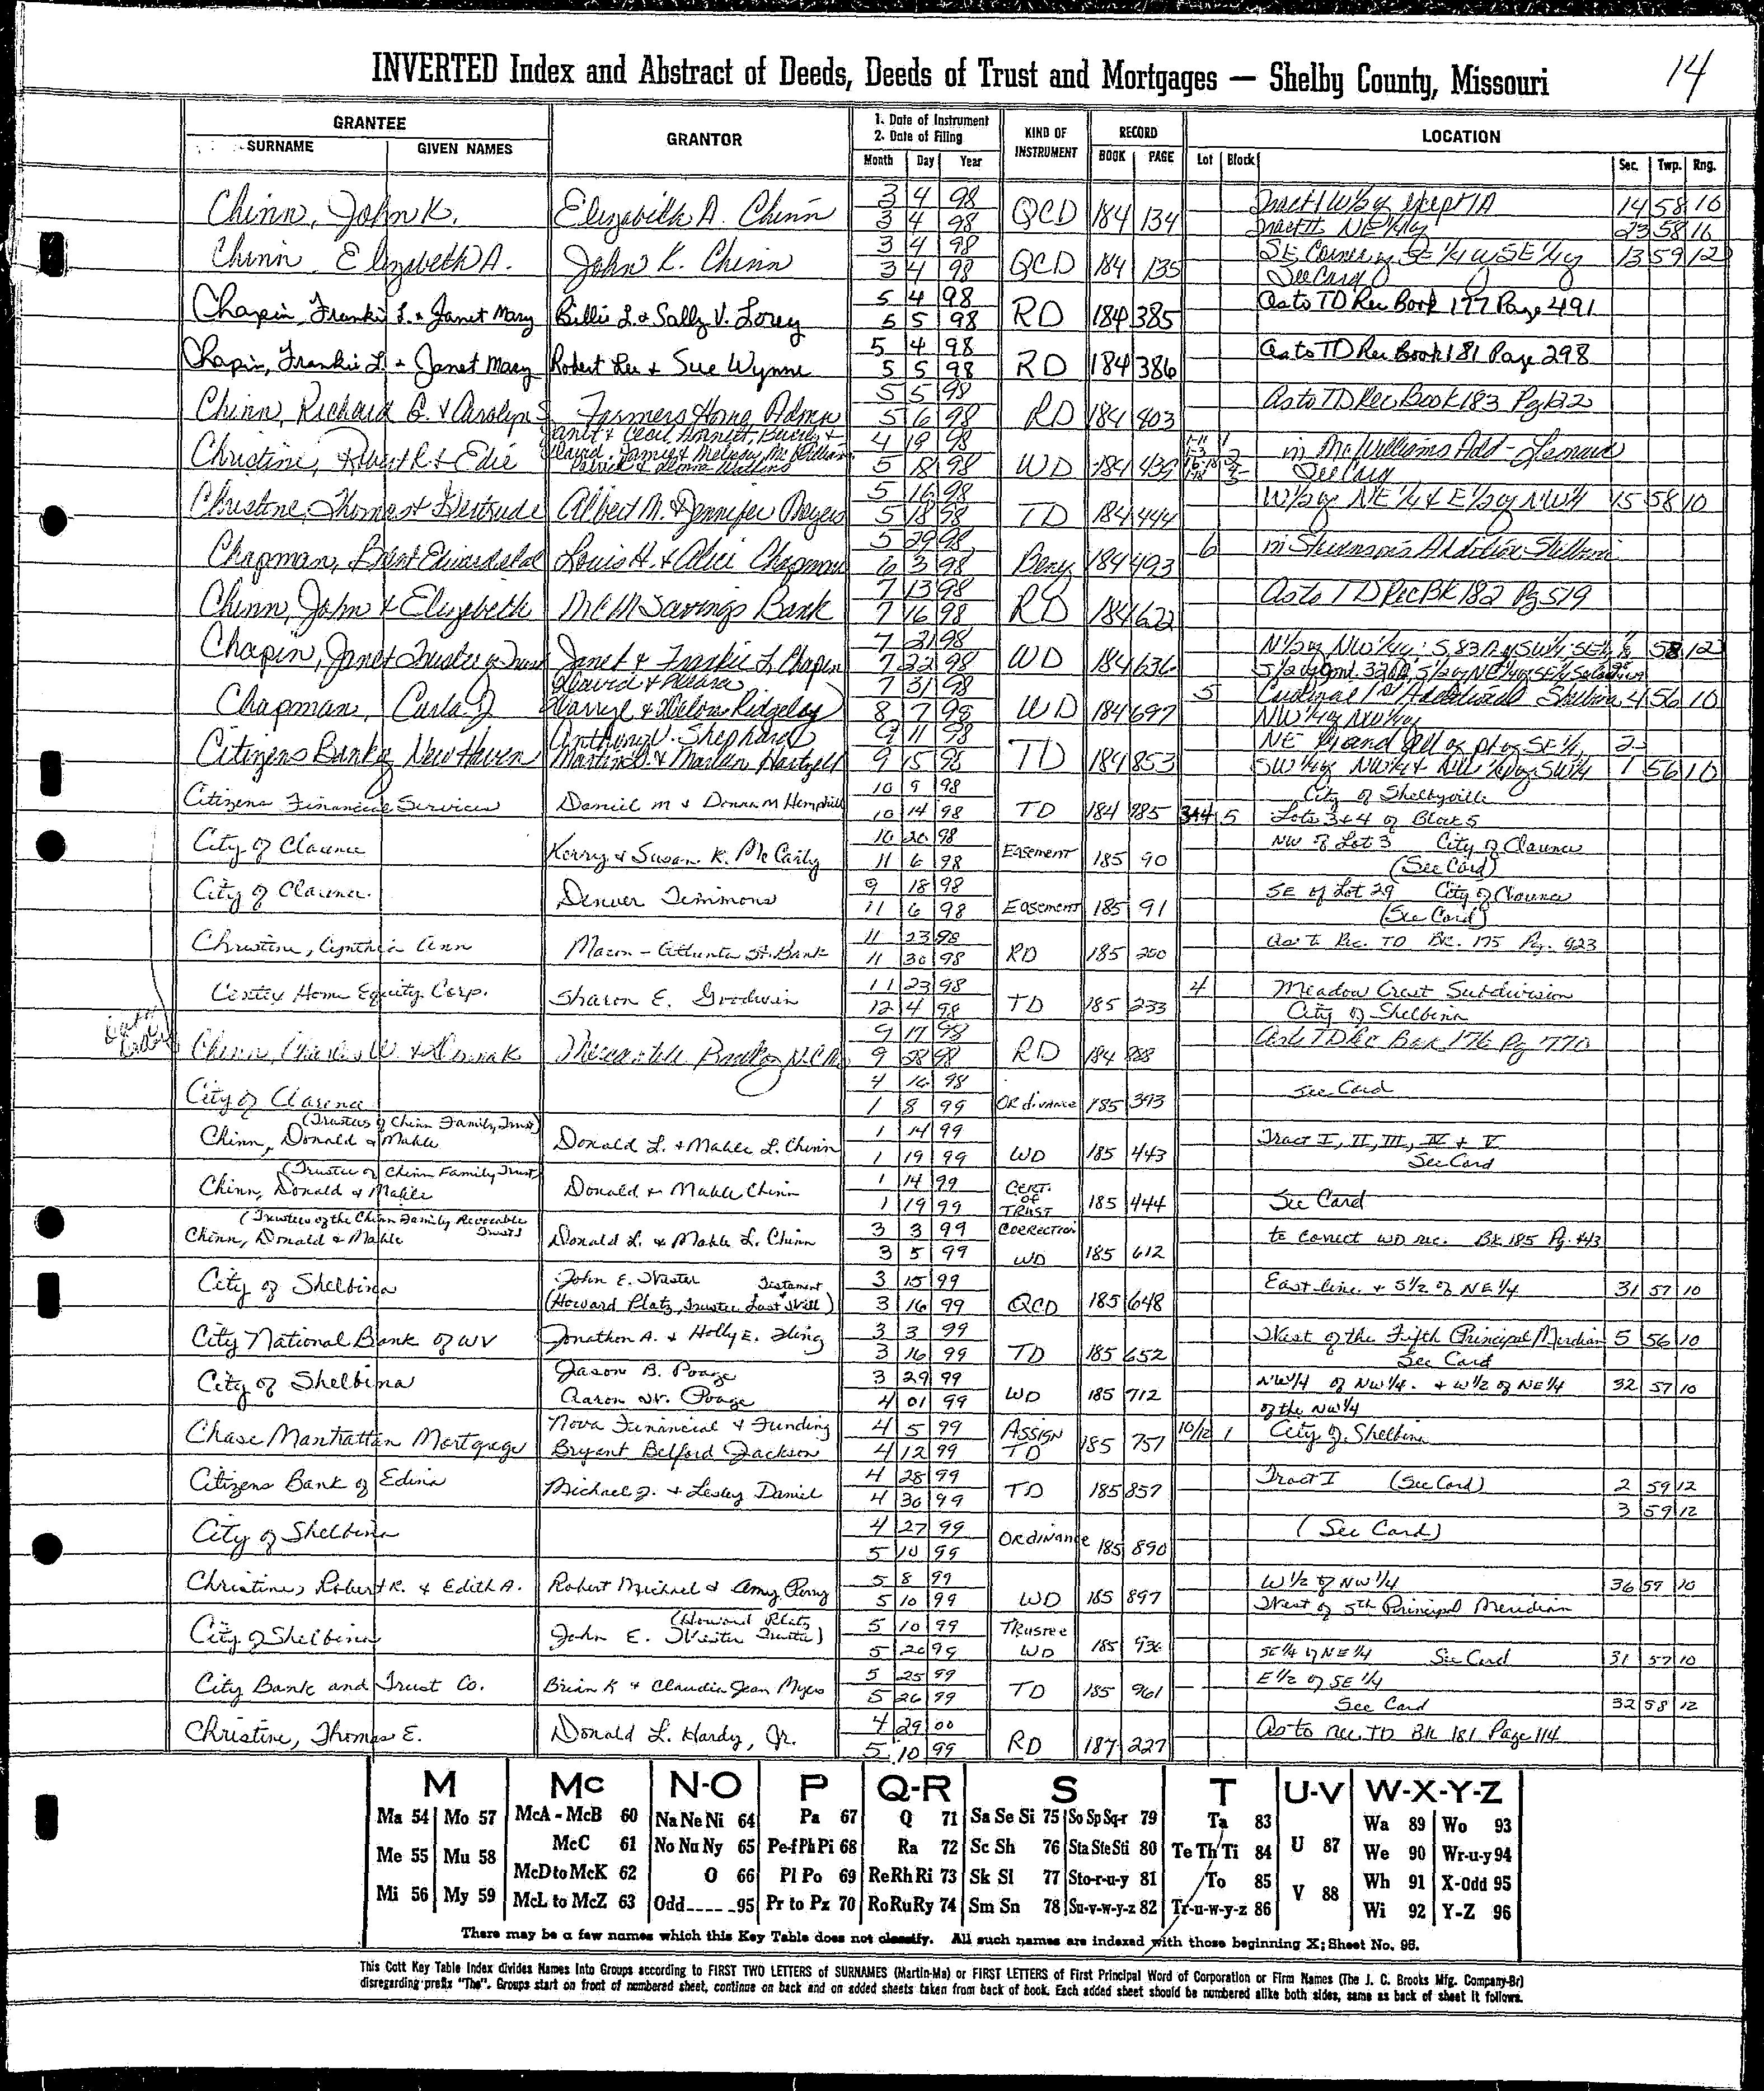 14
INVERTED Index and Abstract of Deeds, Deeds of Trust and Mortgages — Shelby County, Missouri
GRANTEE
SURNAME GIVEN NAMES
GRANTOR
1. Date of Instrument
2. Date of Filing
Month Day Year
KIND OF INSTRUMENT
RECORD
BOOK PAGE
LOCATION
Lot Block Sec. Twp. Rng.
Chinn, John K. Elizabeth A. Chinn 3 4 98 QCD 184 134 Tract I W½ of except 1A 14 58 10
3 4 98 Tract II NE¼ 23 58 16
Chinn Elizabeth A. John K. Chinn 3 4 98 QCD 184 135 SE Corner of SE ¼ SE ¼ 13 59 12
3 4 98 See Card
Chapin, Frankie L. & Janet Mary Billie L. & Sally V. Lorey 5 4 98 RD 184 385 As to TD Rec Book 177 Page 491
5 5 98
Chapin, Frankie L. & Janet Mary Robert Lee & Sue Wynne 5 4 98 RD 184 386 As to TD Rec Book 181 Page 298
5 5 98
Chinn, Richard G. & Carolyn S Farmers Home Admn 5 5 98 RD 184 403 As to TD Rec Book 183 Pg 622
5 6 98
Christine, & Edie 4 19 98 WD 184 439 in McWilliams Add - Leonard
5 18 98 See Card
Christine, Thomas & Gertrude Albert M. & Jennifer 5 16 98 TD 184 444 W½ of NE ¼ & E½ of NW¼ 15 58 10
5 18 98
Chapman, Brent Edward et al Louis H. & Alice Chapman 5 29 98 Beny 184 493 6 in Addition Shelbina
6 3 98
Chinn, John & Elizabeth Savings Bank 7 13 98 RD 184 622 As to TD Rec Bk 182 Pg 519
7 16 98
Chapin, Janet Trustee of Trust Janet & Frankie L. Chapin 7 21 98 WD 184 636 N½ of NW¼ 58 12
7 22 98
Chapman, Carla J David & 7 31 98 WD 184 697 5 Cardinal 1st Shelbina 4 56 10
Darryl & Ridgeley 8 7 98 NW¼ of NW¼
Citizens Bank of New Haven Anthony V. Shephard 9 11 98 TD 184 853 NE ¼ and All of pt of SE ¼ 2
Martin & Marian Hartzell 9 15 98 SW¼ of NW¼ & SW¼ 1 56 10
Citizens Financial Services Daniel M & Donna M Hemphill 10 9 98 TD 184 985 3+4 5 City of Shelbyville
10 14 98 Lots 3+4 of Block 5
City of Clarence Kerry & Susan K. McCarty 10 20 98 Easement 185 90 NW of Lot 3 City of Clarence
11 6 98 (See Card)
City of Clarence. Denver Timmons 9 18 98 Easement 185 91 SE of Lot 29 City of Clarence
11 6 98 (See Card)
Christine, Cynthia Ann Macon-Atlanta St. Bank 11 23 98 RD 185 200 As to Rec. TD Bk. 175 Pg. 923
11 30 98
Centex Home Equity Corp. Sharon E. Goodwin 11 23 98 TD 185 233 4 Meadow Crest Subdivision
12 4 98 City of Shelbina
Chinn, Charles W. & Mercantile Bank of N.C.Mo 9 17 98 RD 184 888 As to TD Rec Book 176 Pg 770
9 28 98
City of Clarence 4 16 98 Ordinance 185 393 See Card
1 8 99
(Trustees of Chinn Family Trust)
Chinn, Donald & Mable Donald L. & Mable L. Chinn 1 14 99 WD 185 443 Tract I, II, III, IV & V
1 19 99 See Card
(Trustee of Chinn Family Trust)
Chinn, Donald & Mable Donald & Mable Chinn 1 14 99 CERT. OF TRUST 185 444 See Card
1 19 99
(Trustees of the Chinn Family Revocable Trust)
Chinn, Donald & Mable Donald L. & Mable L. Chinn 3 3 99 CORRECTION WD 185 612 to correct WD rec. Bk 185 Pg. 443
3 5 99
City of Shelbina John E. Wester 3 15 99 QCD 185 648 East line & S½ of NE ¼ 31 57 10
(Howard Platz, Trustee Last Will & Testament) 3 16 99
City National Bank of WV Jonathon A. & Holly E. Fling 3 3 99 TD 185 652 West of the Fifth Principal Meridian 5 56 10
3 16 99 See Card
City of Shelbina Jason B. Poage 3 29 99 WD 185 712 NW¼ of NW¼. & W½ of NE¼ 32 57 10
Aaron W. Poage 4 01 99 of the NW¼
Chase Manhattan Mortgage Nova Financial & Funding 4 5 99 ASSIGN TD 185 757 10/12 1 City of Shelbina
Bryant Belford Jackson 4 12 99
Citizens Bank of Edina Michael J. & Lesley Daniel 4 28 99 TD 185 857 Tract I (See Card) 2 59 12
4 30 99 3 59 12
City of Shelbina 4 27 99 Ordinance 185 890 (See Card)
5 10 99
Christine, Robert R. & Edith A. Robert Michael & Amy Perry 5 8 99 WD 185 897 W ½ of NW ¼ 36 59 10
5 10 99 West of 5th Principal Meridian
City of Shelbina (Howard Platz Trustee) 5 10 99 Trustee WD 185 936
John E. Wester 5 20 99 SE¼ of NE ¼ See Card 31 57 10
City Bank and Trust Co. Brian K & Claudia Jean Myers 5 25 99 TD 185 961 E½ of SE ¼
5 26 99 See Card 32 58 12
Christine, Thomas E. Donald L. Hardy, Jr. 4 29 00 RD 187 227 As to rec. TD Bk 181 Page 114
5 10 99
M Mc N-O P Q-R S T U-V W-X-Y-Z
Ma 54 Mo 57 McA - McB 60 Na Ne Ni 64 Pa 67 Q 71 Sa Se Si 75 So Sp Sq-r 79 Ta 83 U 87 Wa 89 Wo 93
Me 55 Mu 58 McC 61 No Nu Ny 65 Pe-f Ph Pi 68 Ra 72 Sc Sh 76 Sta Ste Sti 80 Te Th Ti 84 We 90 Wr-u-y 94
McD to McK 62 O 66 Pl Po 69 Re Rh Ri 73 Sk Sl 77 Sto-r-u-y 81 To 85 V 88 Wh 91 X-Odd 95
Mi 56 My 59 McL to McZ 63 Odd 95 Pr to Pz 70 Ro Ru Ry 74 Sm Sn 78 Su-v-w-y-z 82 Tr-u-w-y-z 86 Wi 92 Y-Z 96
There may be a few names which this Key Table does not classify. All such names are indexed with those beginning X; Sheet No. 95.
This Cott Key Table Index divides Names Into Groups according to FIRST TWO LETTERS of SURNAMES (Martin-Ma) or FIRST LETTERS of First Principal Word of Corporation or Firm Names (The J. C. Brooks Mfg. Company-Br)
disregarding prefix "The". Groups start on front of numbered sheet, continue on back and on added sheets taken from back of book. Each added sheet should be numbered alike both sides, same as back of sheet it follows.